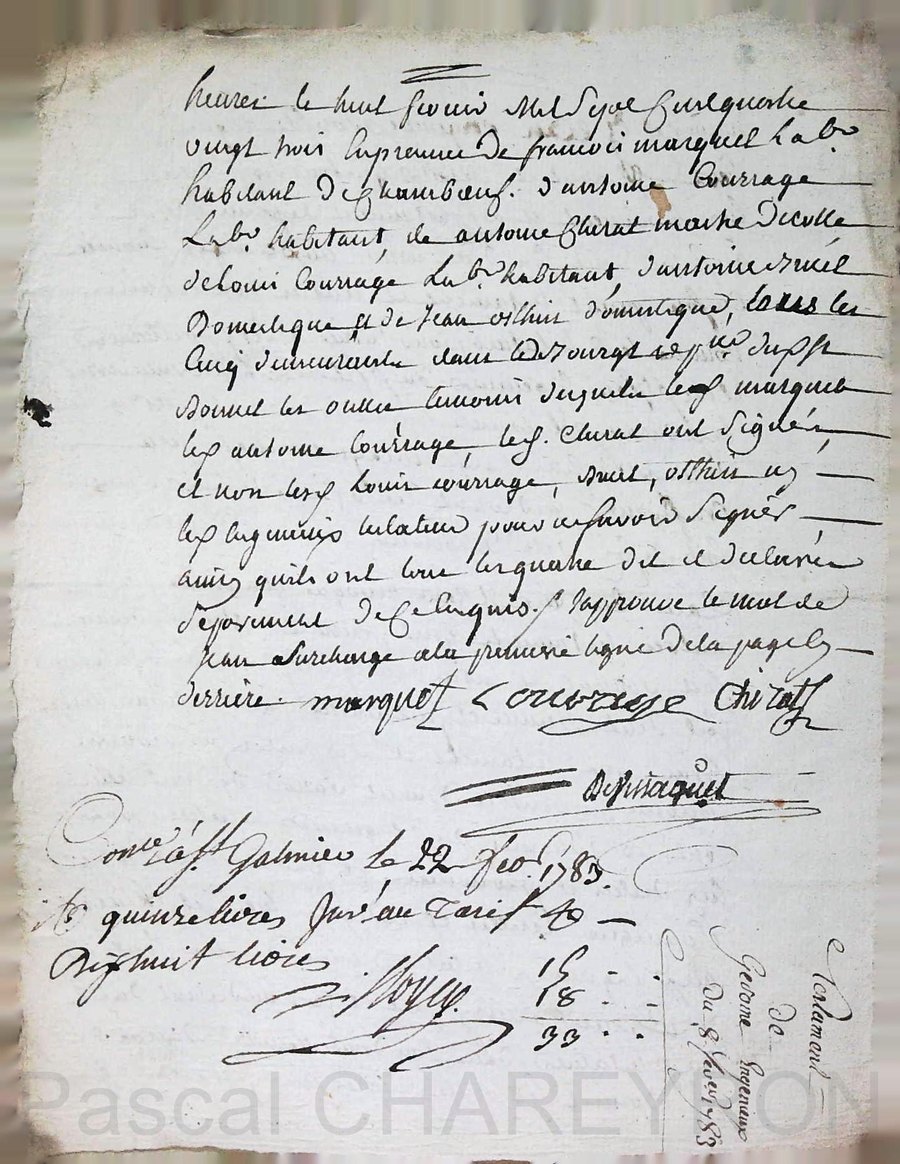 heures le huit fevrier Mil Sept Cent quatre
vingt trois En presence de françois marquet Labr.
habitant de Chambœuf. d'antoine Courrage
Labr. habitant, de antoine Chirat maitre decolle
de Louis Courrage Labr. habitant, d'antoine
Domestique et de Jean othin domestique, tous les
Cinq demeurants dans le Bourgt de St
Bonnet les oulles temoins desquels led. marquet
led. antoine Courrage, led. Chirat ont Signés
et non lesd. Louis courrage, othin ny
led. ingenieux testateur pour ne Savoir Signer
ainsy quils ont tous les quatre dit et declarés
Separement de Ce Enquis. J'approuve le mot de
Jean Surchargé a la premiere ligne de la page Cy
derriere. marquet Courage Chirat

Conlé. à St. Galmier le 22 fevr. 1783.
quinze livres au Tarif
Dix huit livres
15
18
33
testament
de
Gerome ingenieux
du 8 fevrier 1783
Pascal CHAREYRON